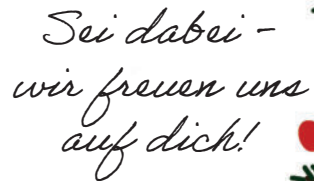 Sei dabei -
wir freuen uns
auf dich!